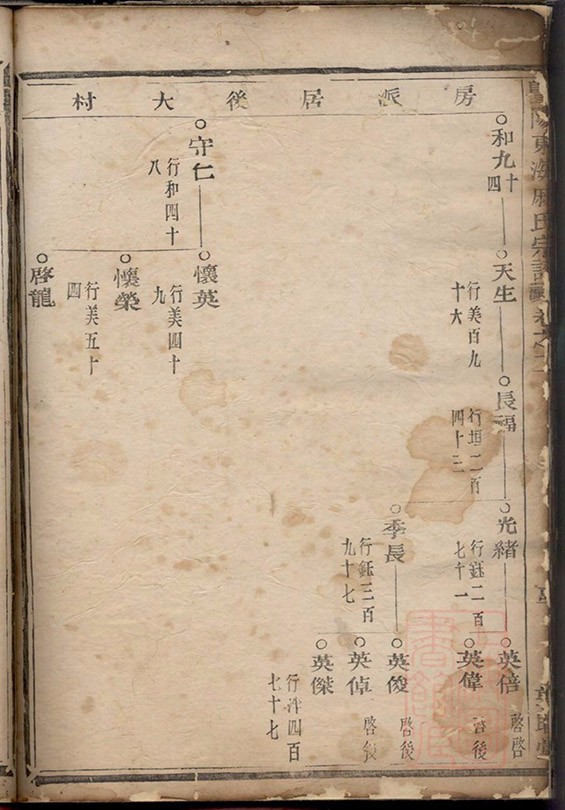 房派居後大村
和九十四
天生
行美百九十六
長福
行垣二百四十三
光緒
行鈺二百七十一
英倍
啓
英偉
啓後
季長
行鈺三百九十七
英俊
啓後
英倬
啓後
英傑
行洋四百七十七
守仁
行和四十八
懷英
行美四十九
懷榮
行美五十四
啓龍
東海
氏宗譜
卷之